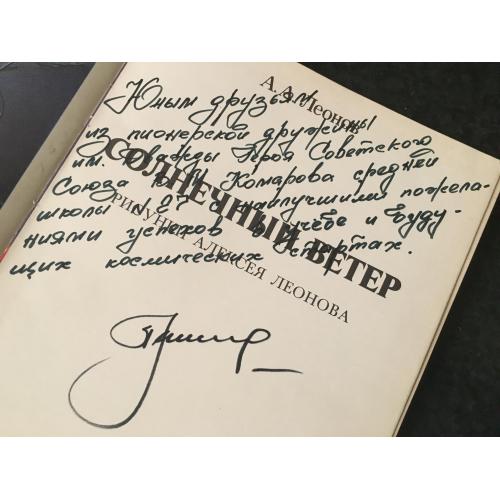 А. А. Леонов
СОЛНЕЧНЫЙ ВЕТЕР
РИСУНКИ АЛЕКСЕЯ ЛЕОНОВА
Юным друзьям
из пионерской дружины
им. дважды Героя Советского
Союза В. М. Комарова средней
школы №27 с наилучшими пожела-
ниями успехов в учебе и буду-
щих космических стартах.